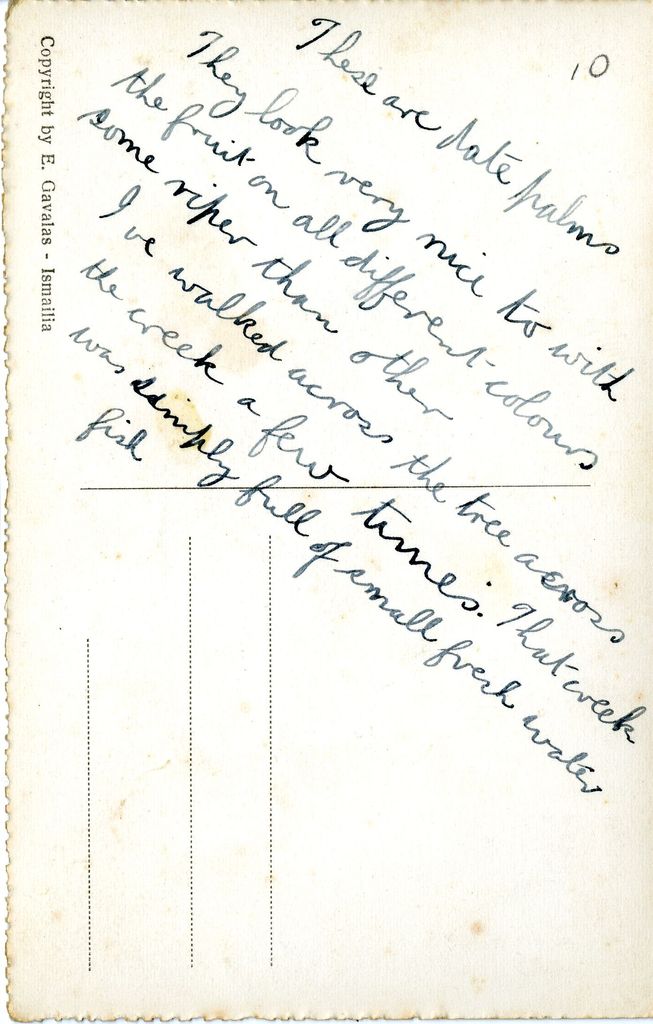 10
These are date palms
They look very nice to with
the fruit on all different colours
some riper than other
I've walked across the tree across
the creek a few times. That creek
was simply full of small fresh water
fish
Copyright by E. Gavalas - Ismailia